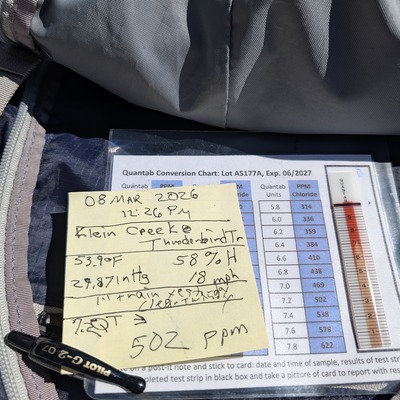 Quantab Conversion Chart: Lot A5177A, Exp. 06/2027
Quantab PPM Quantab PPM Chloride Quantab Units PPM Chloride
5.8 314
6.0 336
6.2 359
6.4 384
6.6 410
6.8 438
7.0 469
7.2 502
7.4 538
7.6 578
7.8 622
08 MAR 2026
12:26 PM
Klein Creek @
Thunderbird Tr
53.9°F 58 %H
29.87 inHg 18 mph
rain yesterday
502 ppm
on a post-it note and stick to card: date and time of sample, results of test strip
completed test strip in black box and take a picture of card to report with res
PILOT G-2 07